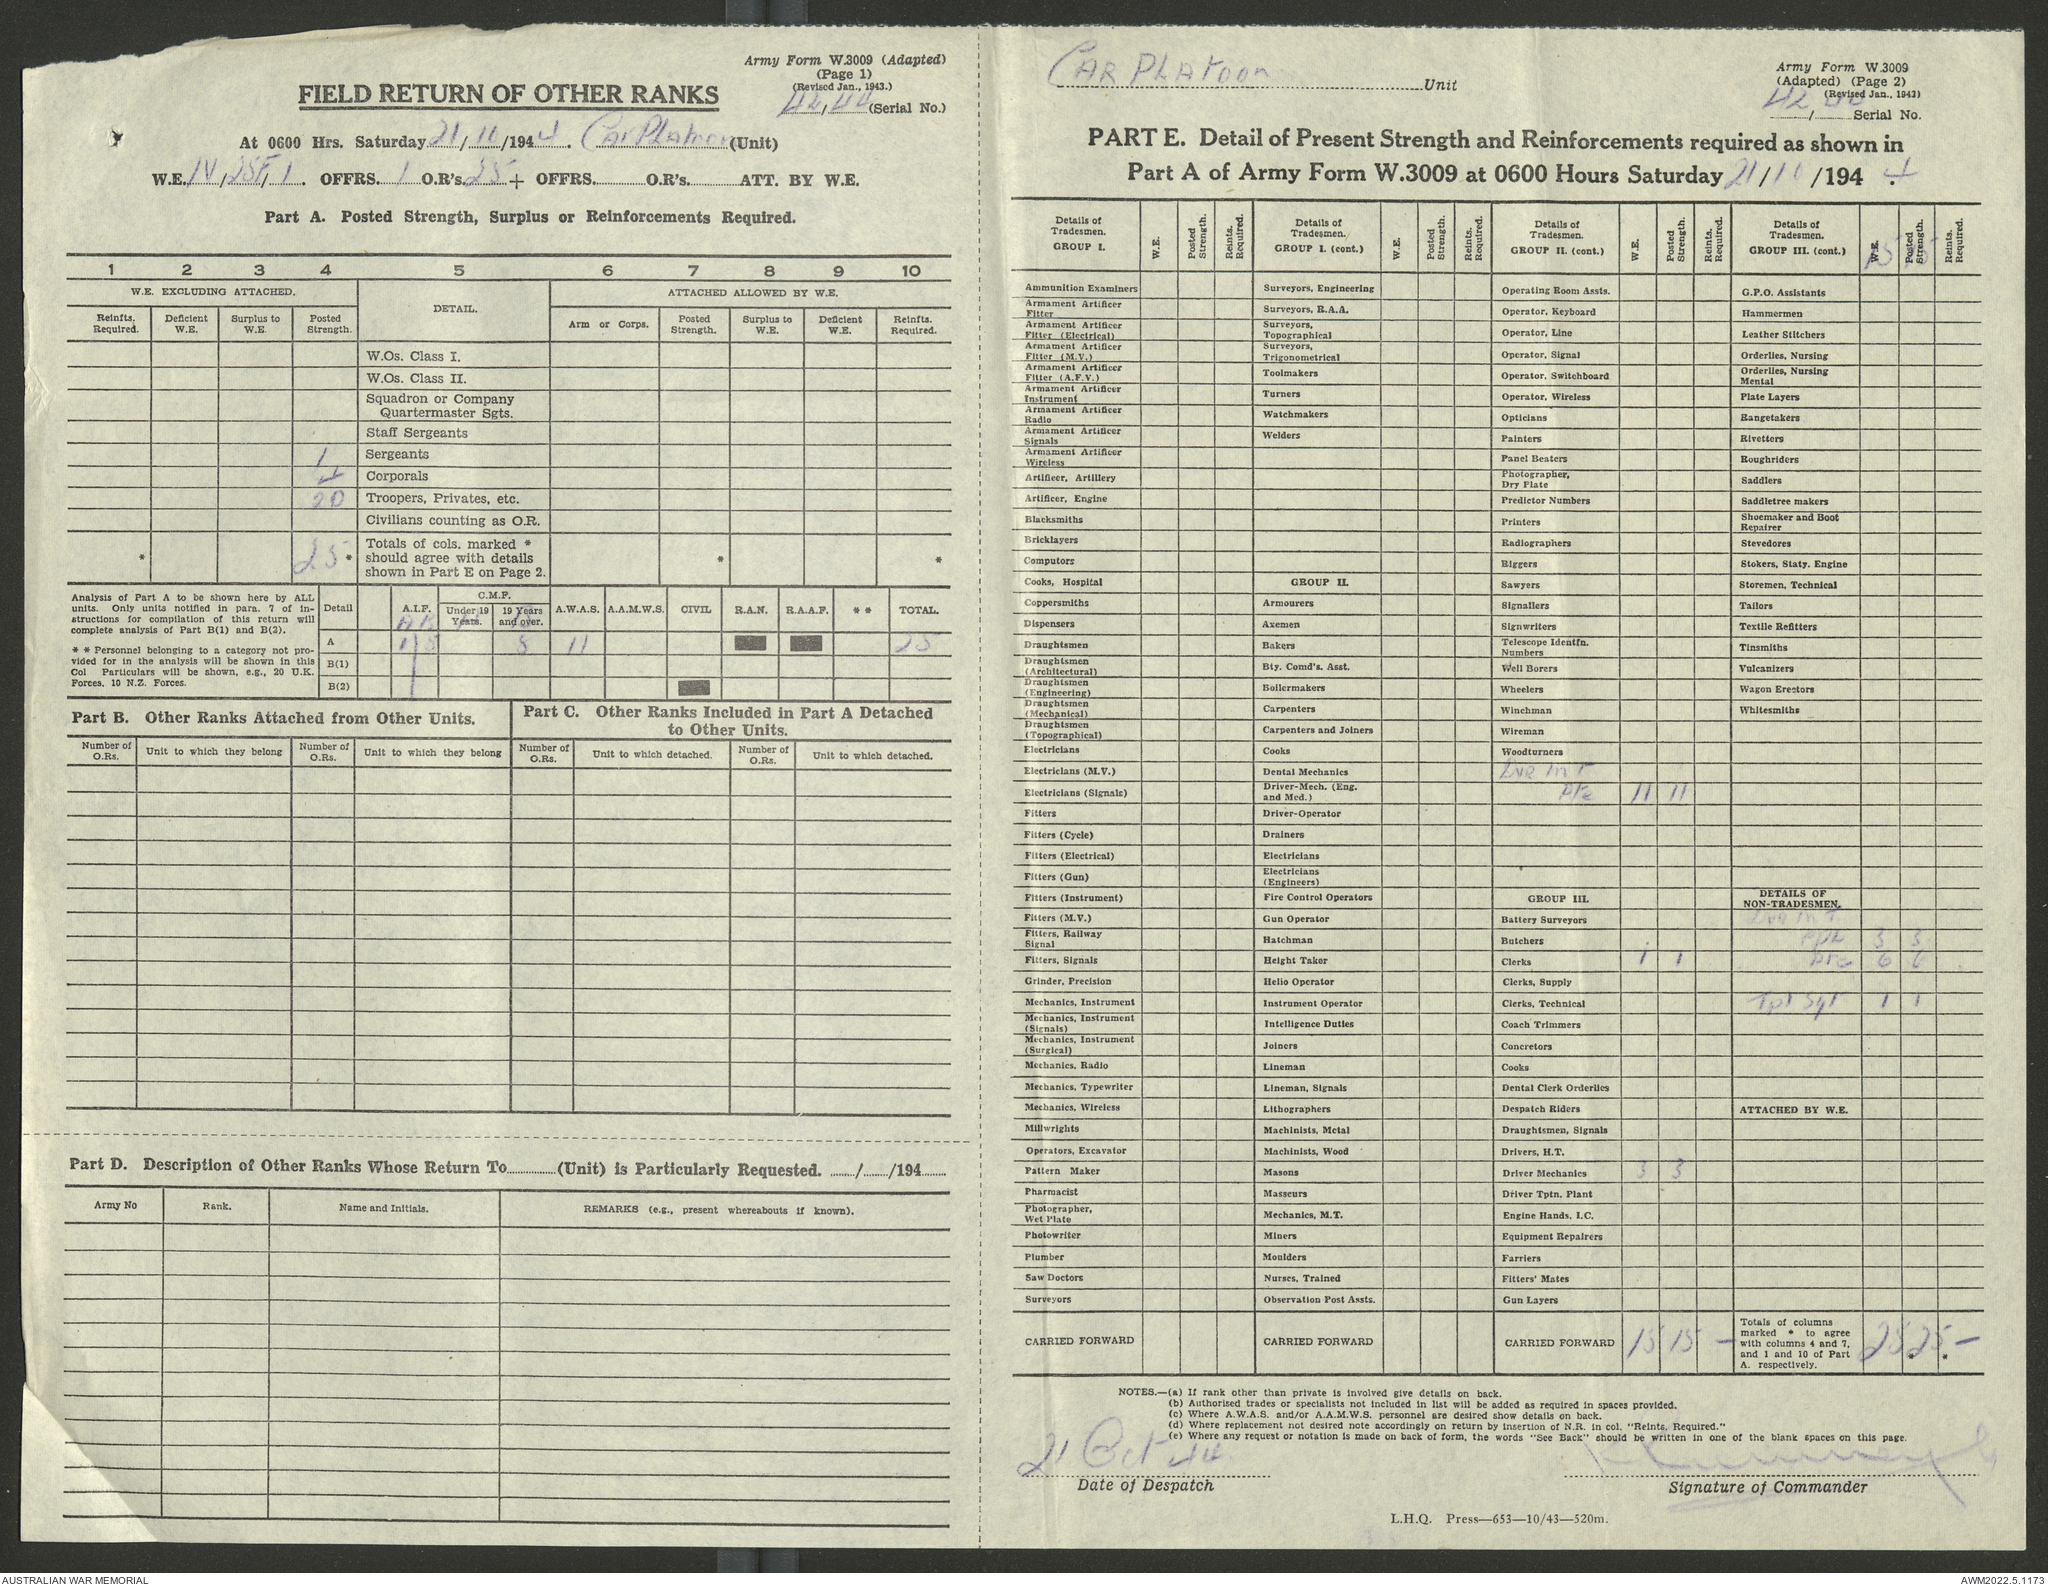 Army Form W.3009 (Adapted)
(Page 1)
(Revised Jan., 1943.)
FIELD RETURN OF OTHER RANKS
42/44 (Serial No.)
At 0600 Hrs. Saturday 21/ /1944. Car Platoon (Unit)
W.E. IV/25F/1. OFFRS. 1 O.R's. 25 + OFFRS. O.R's. ATT. BY W.E.
Part A. Posted Strength, Surplus or Reinforcements Required.
1 2 3 4 5 6 7 8 9 10
W.E. EXCLUDING ATTACHED. DETAIL. ATTACHED ALLOWED BY W.E.
Reinfts. Required. Deficient W.E. Surplus to W.E. Posted Strength. Arm or Corps. Posted Strength. Surplus to W.E. Deficient W.E. Reinfts. Required.
W.Os. Class I.
W.Os. Class II.
Squadron or Company
Quartermaster Sgts.
Staff Sergeants
1 Sergeants
4 Corporals
20 Troopers, Privates, etc.
Civilians counting as O.R.
* 25 * Totals of cols. marked * should agree with details shown in Part E on Page 2. * *
Analysis of Part A to be shown here by ALL
units. Only units notified in para. 7 of in-
structions for compilation of this return will
complete analysis of Part B(1) and B(2).
* * Personnel belonging to a category not pro-
vided for in the analysis will be shown in this
Col Particulars will be shown, e.g., 20 U.K.
Forces, 10 N.Z. Forces.
Detail A.I.F. C.M.F. Under 19 Years. 19 Years and over. A.W.A.S. A.A.M.W.S. CIVIL R.A.N. R.A.A.F. * * TOTAL.
A 8 11 25
B(1)
B(2)
Part B. Other Ranks Attached from Other Units.
Number of O.Rs. Unit to which they belong Number of O.Rs. Unit to which they belong
Part C. Other Ranks Included in Part A Detached
to Other Units.
Number of O.Rs. Unit to which detached. Number of O.Rs. Unit to which detached.
Part D. Description of Other Ranks Whose Return To (Unit) is Particularly Requested. / /194
Army No Rank. Name and Initials. REMARKS (e.g., present whereabouts if known).
Car Platoon Unit
Army Form W.3009
(Adapted) (Page 2)
(Revised Jan., 1943)
42/ Serial No.
PART E. Detail of Present Strength and Reinforcements required as shown in
Part A of Army Form W.3009 at 0600 Hours Saturday 21/10/1944.
Details of Tradesmen. GROUP I. W.E. Posted Strength. Reints. Required.
Ammunition Examiners
Armament Artificer Fitter
Armament Artificer Fitter (Electrical)
Armament Artificer Fitter (M.V.)
Armament Artificer Fitter (A.F.V.)
Armament Artificer Instrument
Armament Artificer Radio
Armament Artificer Signals
Armament Artificer Wireless
Artificer, Artillery
Artificer, Engine
Blacksmiths
Bricklayers
Computors
Cooks, Hospital
Coppersmiths
Dispensers
Draughtsmen
Draughtsmen (Architectural)
Draughtsmen (Engineering)
Draughtsmen (Mechanical)
Draughtsmen (Topographical)
Electricians
Electricians (M.V.)
Electricians (Signals)
Fitters
Fitters (Cycle)
Fitters (Electrical)
Fitters (Gun)
Fitters (Instrument)
Fitters (M.V.)
Fitters, Railway Signal
Fitters, Signals
Grinder, Precision
Mechanics, Instrument
Mechanics, Instrument (Signals)
Mechanics, Instrument (Surgical)
Mechanics, Radio
Mechanics, Typewriter
Mechanics, Wireless
Millwrights
Operators, Excavator
Pattern Maker
Pharmacist
Photographer, Wet Plate
Photowriter
Plumber
Saw Doctors
Surveyors
CARRIED FORWARD
Details of Tradesmen. GROUP I. (cont.) W.E. Posted Strength. Reints. Required.
Surveyors, Engineering
Surveyors, R.A.A.
Surveyors, Topographical
Surveyors, Trigonometrical
Toolmakers
Turners
Watchmakers
Welders
GROUP II.
Armourers
Axemen
Bakers
Bty. Comd's. Asst.
Boilermakers
Carpenters
Carpenters and Joiners
Cooks
Dental Mechanics
Driver-Mech. (Eng. and Med.)
Driver-Operator
Drainers
Electricians
Electricians (Engineers)
Fire Control Operators
Gun Operator
Hatchman
Height Taker
Helio Operator
Instrument Operator
Intelligence Duties
Joiners
Lineman
Lineman, Signals
Lithographers
Machinists, Metal
Machinists, Wood
Masons
Masseurs
Mechanics, M.T.
Miners
Moulders
Nurses, Trained
Observation Post Assts.
CARRIED FORWARD
Details of Tradesmen. GROUP II. (cont.) W.E. Posted Strength. Reints. Required.
Operating Room Assts.
Operator, Keyboard
Operator, Line
Operator, Signal
Operator, Switchboard
Operator, Wireless
Opticians
Painters
Panel Beaters
Photographer, Dry Plate
Predictor Numbers
Printers
Radiographers
Riggers
Sawyers
Signallers
Signwriters
Telescope Identfn. Numbers
Well Borers
Wheelers
Winchman
Wireman
Woodturners
Dvr M T
Pte 11 11
GROUP III.
Battery Surveyors
Butchers
Clerks 1 1
Clerks, Supply
Clerks, Technical
Coach Trimmers
Concretors
Cooks
Dental Clerk Orderlies
Despatch Riders
Draughtsmen, Signals
Drivers, H.T.
Driver Mechanics 3 3
Driver Tptn. Plant
Engine Hands, I.C.
Equipment Repairers
Farriers
Fitters' Mates
Gun Layers
CARRIED FORWARD 15 15 —
Details of Tradesmen. GROUP III. (cont.) W.E. Posted Strength. Reints. Required.
15 15
G.P.O. Assistants
Hammermen
Leather Stitchers
Orderlies, Nursing
Orderlies, Nursing Mental
Plate Layers
Rangetakers
Rivetters
Roughriders
Saddlers
Saddletree makers
Shoemaker and Boot Repairer
Stevedores
Stokers, Staty. Engine
Storemen, Technical
Tailors
Textile Refitters
Tinsmiths
Vulcanizers
Wagon Erectors
Whitesmiths
DETAILS OF NON-TRADESMEN.
Dvr M T
Cpl 3 3
Pte 6 6
Tpt Sgt 1 1
ATTACHED BY W.E.
Totals of columns marked * to agree with columns 4 and 7, and 1 and 10 of Part A. respectively. 25 25 —
* *
NOTES.—(a) If rank other than private is involved give details on back.
(b) Authorised trades or specialists not included in list will be added as required in spaces provided.
(c) Where A.W.A.S. and/or A.A.M.W.S. personnel are desired show details on back.
(d) Where replacement not desired note accordingly on return by insertion of N.R. in col. "Reints. Required."
(e) Where any request or notation is made on back of form, the words "See Back" should be written in one of the blank spaces on this page.
21 Oct 44
Date of Despatch
Signature of Commander
L.H.Q. Press—653—10/43—520m.
AUSTRALIAN WAR MEMORIAL
AWM2022.5.1173